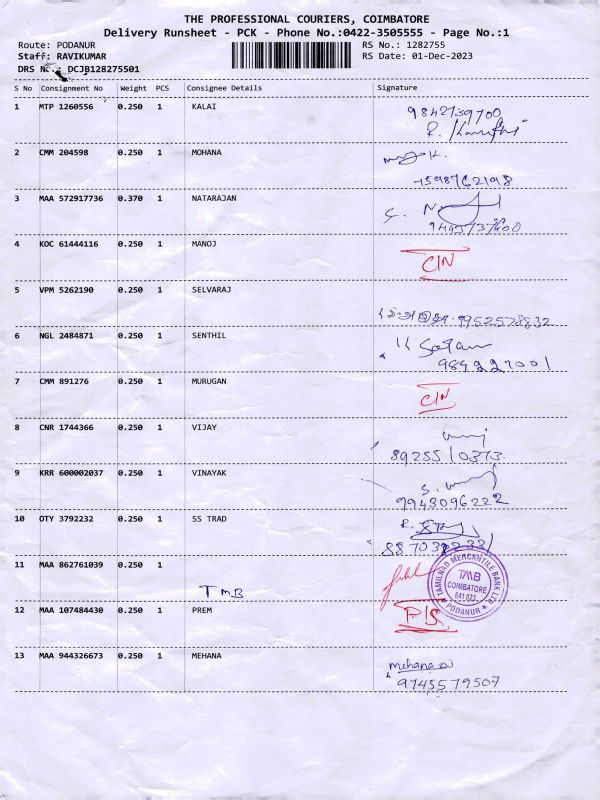 THE PROFESSIONAL COURIERS, COIMBATORE
Delivery Runsheet - PCK - Phone No.:0422-3505555 - Page No.:1
Route: PODANUR RS No.: 1282755
Staff: RAVIKUMAR RS Date: 01-Dec-2023
DRS No.: DCJB128275501
S No Consignment No Weight PCS Consignee Details Signature
1 MTP 1260556 0.250 1 KALAI
9842739700
2 CMM 204598 0.250 1 MOHANA
3 MAA 572917736 0.370 1 NATARAJAN
4 KOC 61444116 0.250 1 MANOJ
C/N
5 VPM 5262190 0.250 1 SELVARAJ
9952578832
6 NGL 2484871 0.250 1 SENTHIL
9842227001
7 CMM 891276 0.250 1 MURUGAN
C/N
8 CNR 1744366 0.250 1 VIJAY
8925510373
9 KRR 600002037 0.250 1 VINAYAK
9948096222
10 OTY 3792232 0.250 1 SS TRAD
11 MAA 862761039 0.250 1
TMB
TAMILNAD MERCANTILE BANK LTD
TMB
COIMBATORE
641 023
PODANUR
12 MAA 107484430 0.250 1 PREM
13 MAA 944326673 0.250 1 MEHANA
Mehana
9745579507